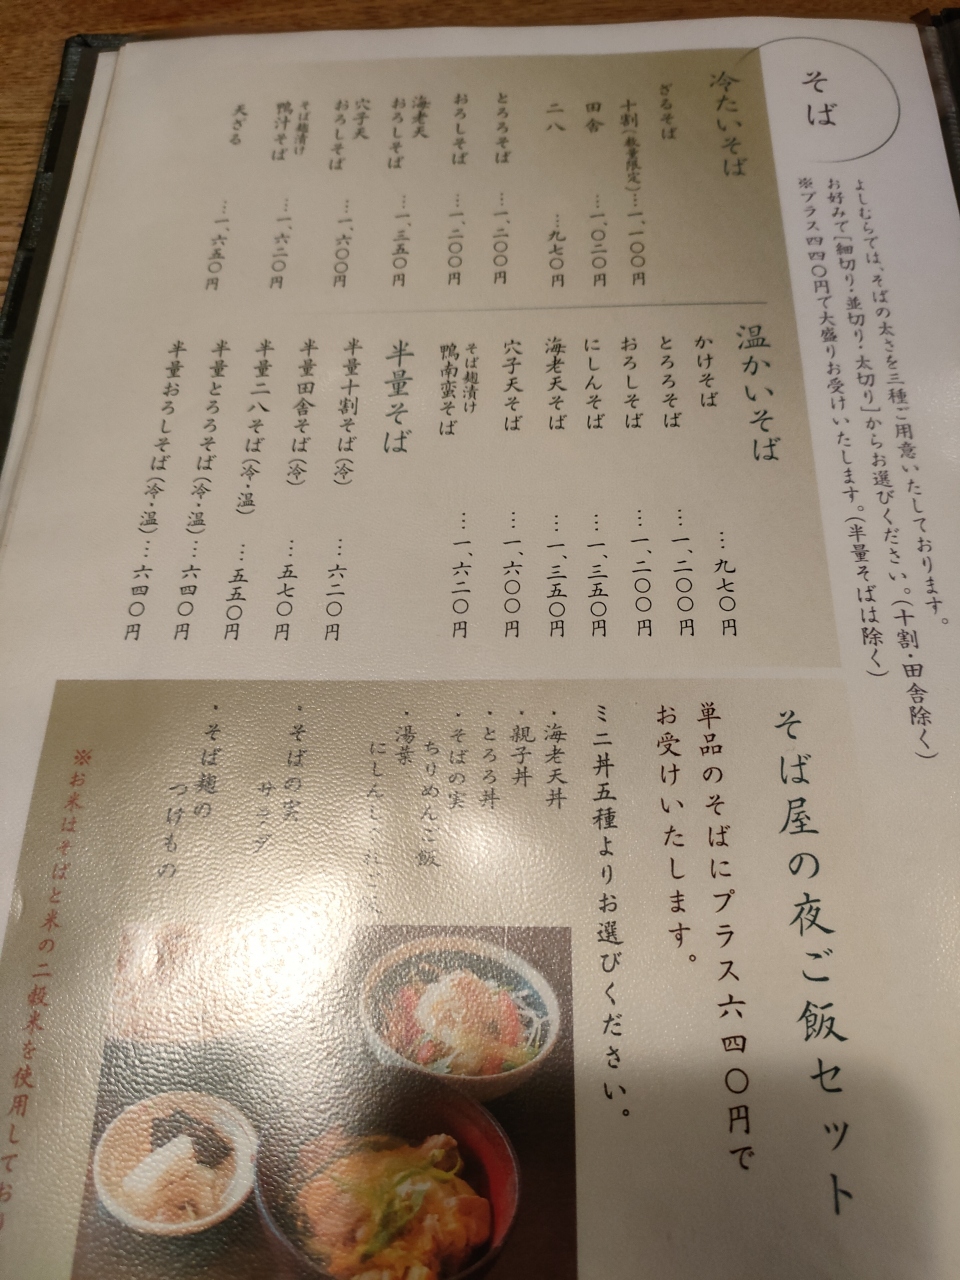 そば
よしむらでは、そばの太さを三種ご用意いたしております。
お好みで[細切り・並切り・太切り]からお選びください。(十割・田舎除く)
※プラス四四〇円で大盛りお受けいたします。(半量そばは除く)
冷たいそば
ざるそば
十割(数量限定)…一、一〇〇円
田舎…一、〇二〇円
二八…九七〇円
とろろそば…一、二〇〇円
おろしそば…一、二〇〇円
海老天
おろしそば…一、三五〇円
穴子天
おろしそば…一、六〇〇円
そば麹漬け
鴨汁そば…一、六二〇円
天ざる…一、六五〇円
温かいそば
かけそば…九七〇円
とろろそば…一、二〇〇円
おろしそば…一、二〇〇円
にしんそば…一、三五〇円
海老天そば…一、三五〇円
穴子天そば…一、六〇〇円
そば麹漬け
鴨南蛮そば…一、六二〇円
半量そば
半量十割そば(冷)…六二〇円
半量田舎そば(冷)…五七〇円
半量二八そば(冷・温)…五五〇円
半量とろろそば(冷・温)…六四〇円
半量おろしそば(冷・温)…六四〇円
そば屋の夜ご飯セット
単品のそばにプラス六四〇円で
お受けいたします。
ミニ丼五種よりお選びください。
・海老天丼
・親子丼
・とろろ丼
・そばの実
ちりめんご飯
・湯葉
にしん
・そばの実
サラダ
・そば麹の
つけもの
※お米はそばと米の二穀米を使用しており